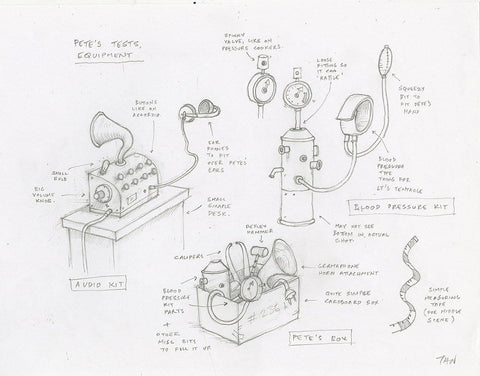 PETE'S TESTS,
EQUIPMENT
STICKY
VALVE, LIKE ON
PRESSURE COOKERS.
LOOSE
FITTING SO
IT CAN
'RATTLE'
SQUEEDY
BIT TO
FIT PETE'S
HAND
BUTTONS
LIKE ON
ACCORDIA
EAR
PHONES
TO FIT
OVER PETE'S
EARS
SMALL
BULB
BIG
VOLUME
KNOB.
SMALL
SIMPLE
DESK.
AUDIO KIT
BLOOD
PRESSURE
TYPE
THING FOR
IT'S TENTACLE
BLOOD PRESSURE KIT
MAY NOT SEE
BOTTOM IN ACTUAL
SHOT!
REFLEX
HAMMER
CALIPERS
GRAMAPHONE
HORN ATTACHMENT
BLOOD
PRESSURE
KIT
PARTS
+
OTHER
MISC BITS
TO FILL IT UP
QUITE SIMPLE
CARDBOARD BOX
PETE'S BOX
SIMPLE
MEASURING
TAPE
(FOR MIDDLE
SCENE)